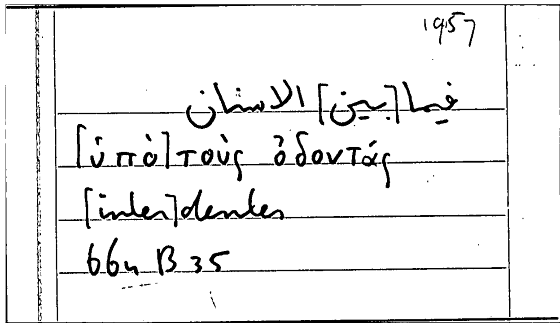 1957
فيما [بين] الاسنان
[ὑπὸ] τοὺς ὀδοντάς
[inter] dentes
664 B 35